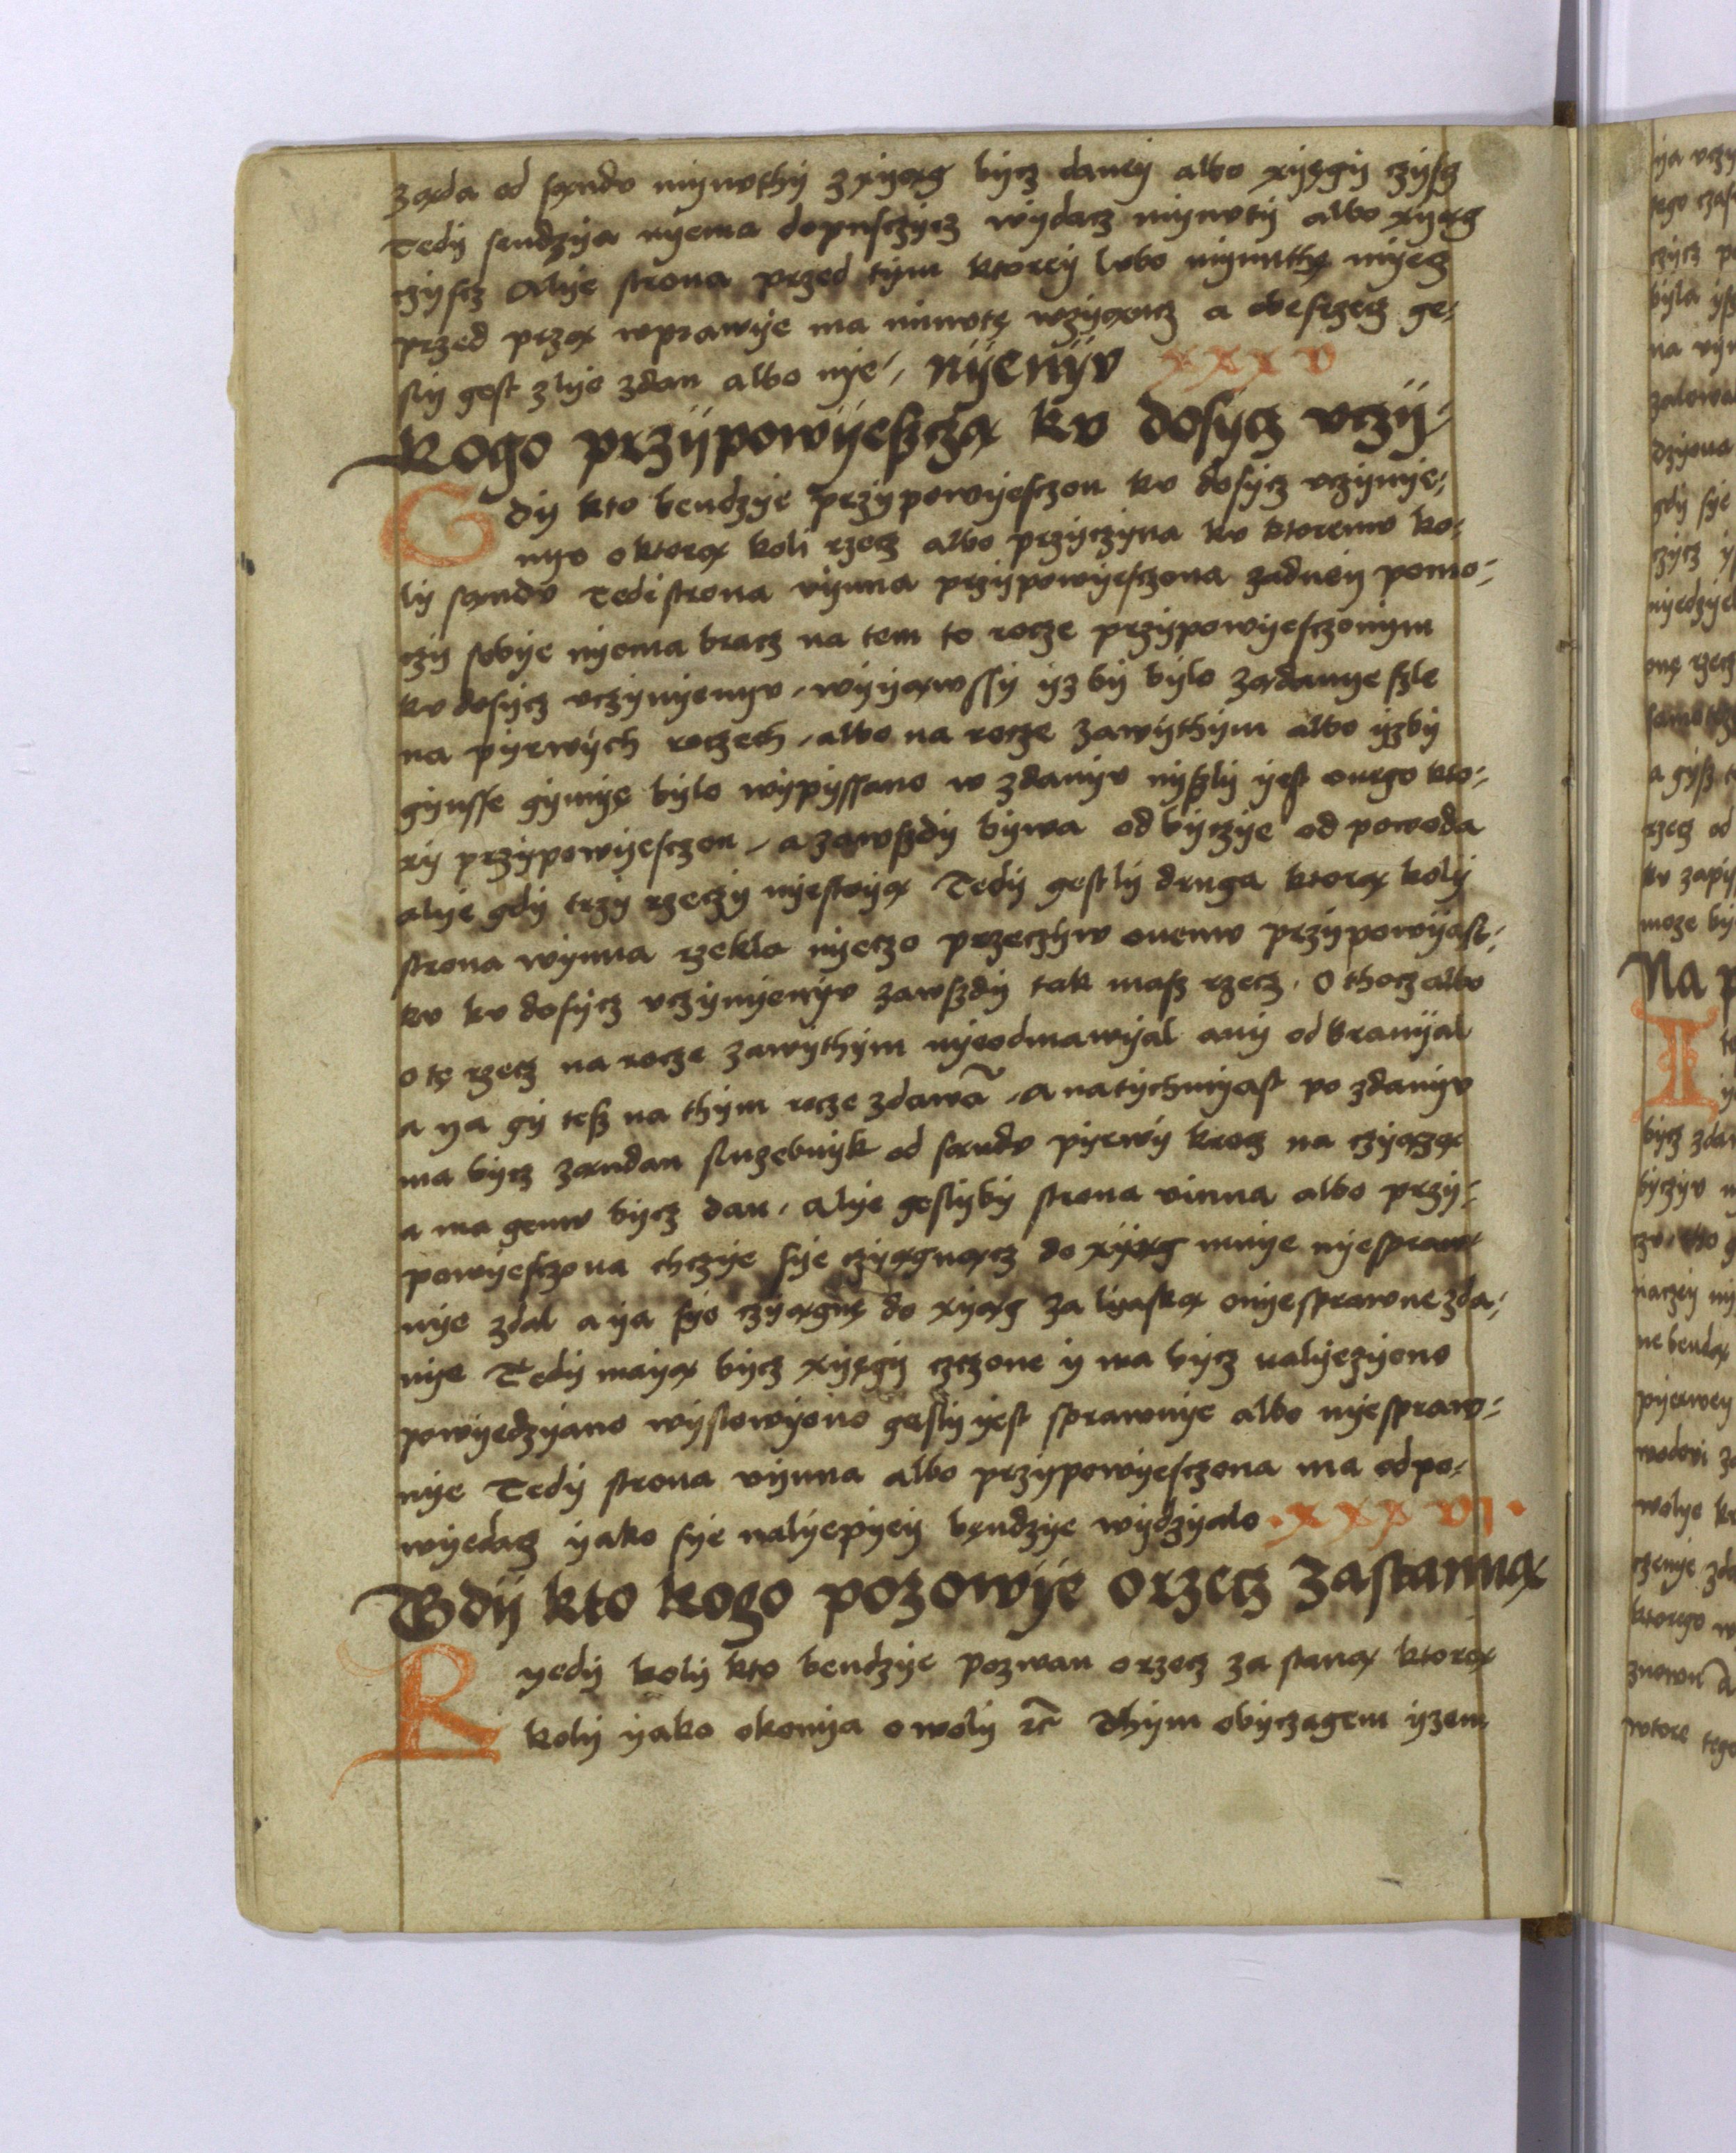 ząda od sąndv mynvthy z xyąg bycz daney albo xyęgy czyscz
Tedy sendzya nyema dopusczycz wydacz mynvty albo xyąg
czyscz Alye strona przed tym ktorey lvbo mynuthę myecz
przed przą wprawye ma minvtę wzyąncz a obeszrzecz ge⸗
sly gest zlye zdan albo nye /
nyenyv xxxv
Kogo przypowyeszczą kv dosycz vczy⸗
Gdy kto bendzye przypowyesczon kv dosycz vczynye⸗
nyv o ktorą koli rzecz albo przyczyna kv ktoremv ko⸗
ly sąndv Tedi strona vynna przypowyesczona zadney pomo⸗
czy sobye nyema bracz na tem to rocze przypowyesczonym
kv dosycz vczynyenyv / wyyąwssy yz by bylo ządanye szle
na pyrwych roczech / albo na rocze zawythym albo yzby
gynsse gymye bylo wypyssano w zdanyv nyszly yest onego kto⸗
ry przypowyesczon / a zawszdy bywa odbyczye od powoda
alye gdy trzy rzeczy nyestoyą Tedy gestly druga ktorą koly
strona wynna rzekla nyeczo przeczyw onemv przypowyast⸗
kv kv dosycz vczynyenyv zawszdy tak masz rzecz . O thocz albo
o tę rzecz na rocze zawythym nyeodmawyal any odbranyal
a ya gy tesz na thym rocze zdawã / A natychmyast po zdanyv
ma bycz ząndan sluzebnyk od sąndv pyrwy krocz na czyączą
a ma gemv bycz dan . Alye geslyby strona vinna albo przy⸗
powyesczona chczye sye czyągnącz do xyąg mnye nyespraw
nye zdal a ya sye czyągnę do xyąg za lyaską o nyesprawne zda⸗
nye Tedy mayą bycz xyęgy czczone y ma bycz nalyezyono
powyedzyano wyslowyono gesly yest sprawnye albo nyespraw⸗
nye Tedy strona vynna albo przypowyesczona ma odpo⸗
wyedacz yako sye nalyepyey bendzye wydzyalo . xxxvi .
Gdy kto kogo pozowye o rzecz zastanną
Kyedy koly kto bendzye pozwan o rzecz zastaną ktorą
koly yako o konya o woly rc̃ Thym obyczagem yzem